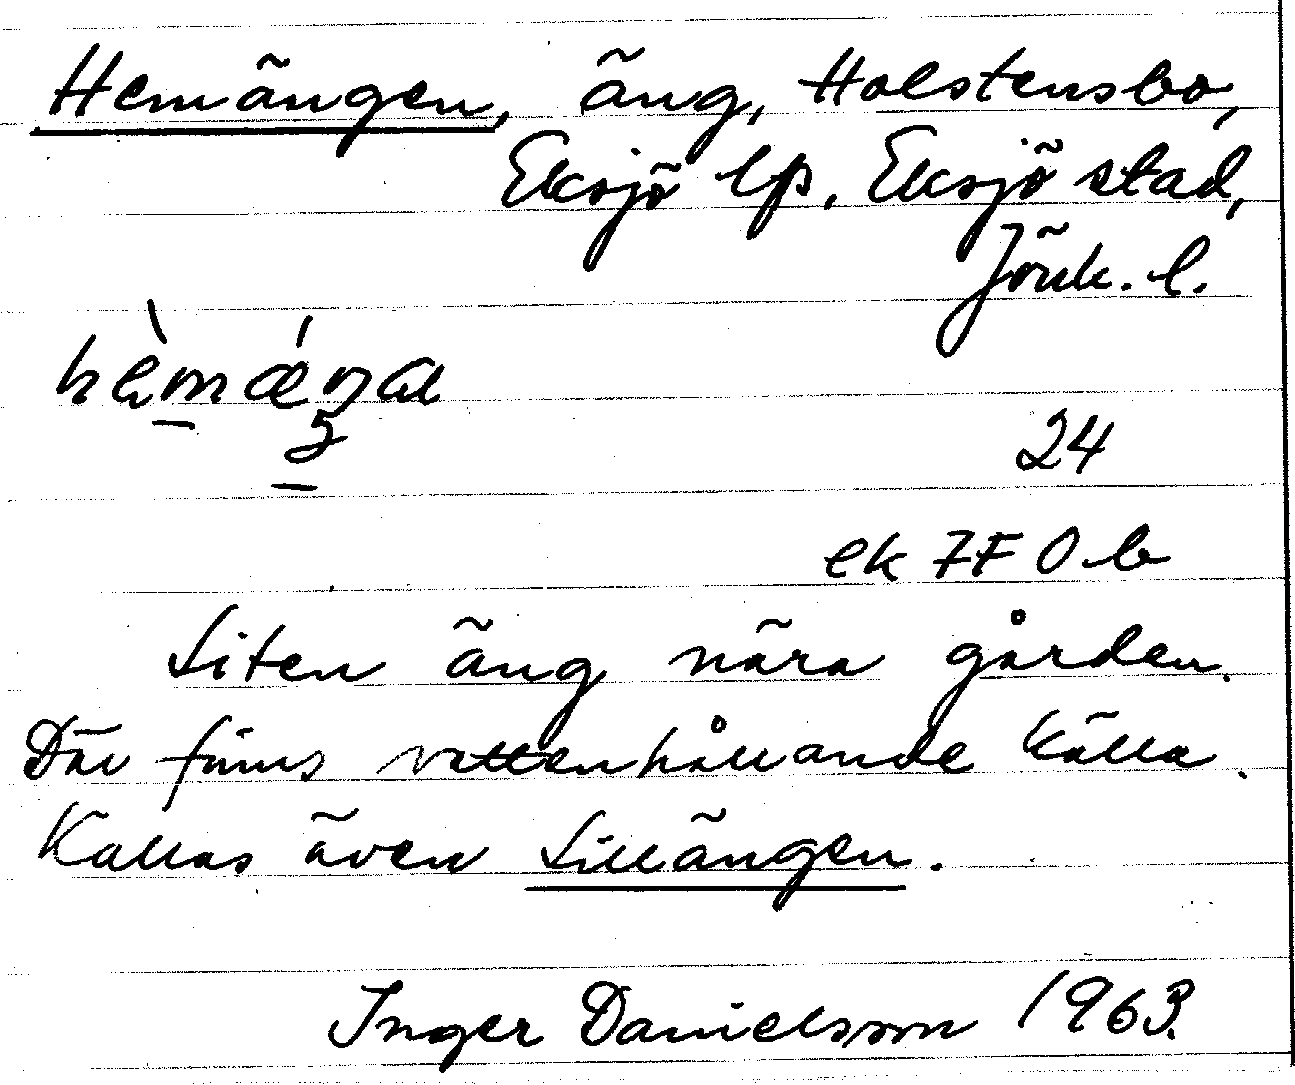 Hemängen, äng, Holstensbo,
Eksjö lp, Eksjö stad,
Jönk. l.
hèmǽŋa
24
ek 7F 0 b
Liten äng nära gården.
Där finns vattenhållande källa.
Kallas även Lillängen.
Inger Danielsson 1963.